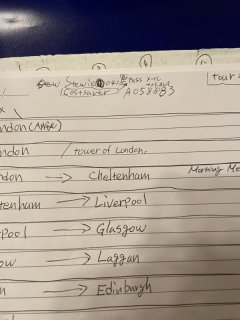 Stewie
Costsaver A05883
tour
London (Arrive)
London / tower of London,
London → Cheltenham Morning Me
tenham → Liverpool
rpool → Glasgow
ow → Laggan
n → Edinburgh